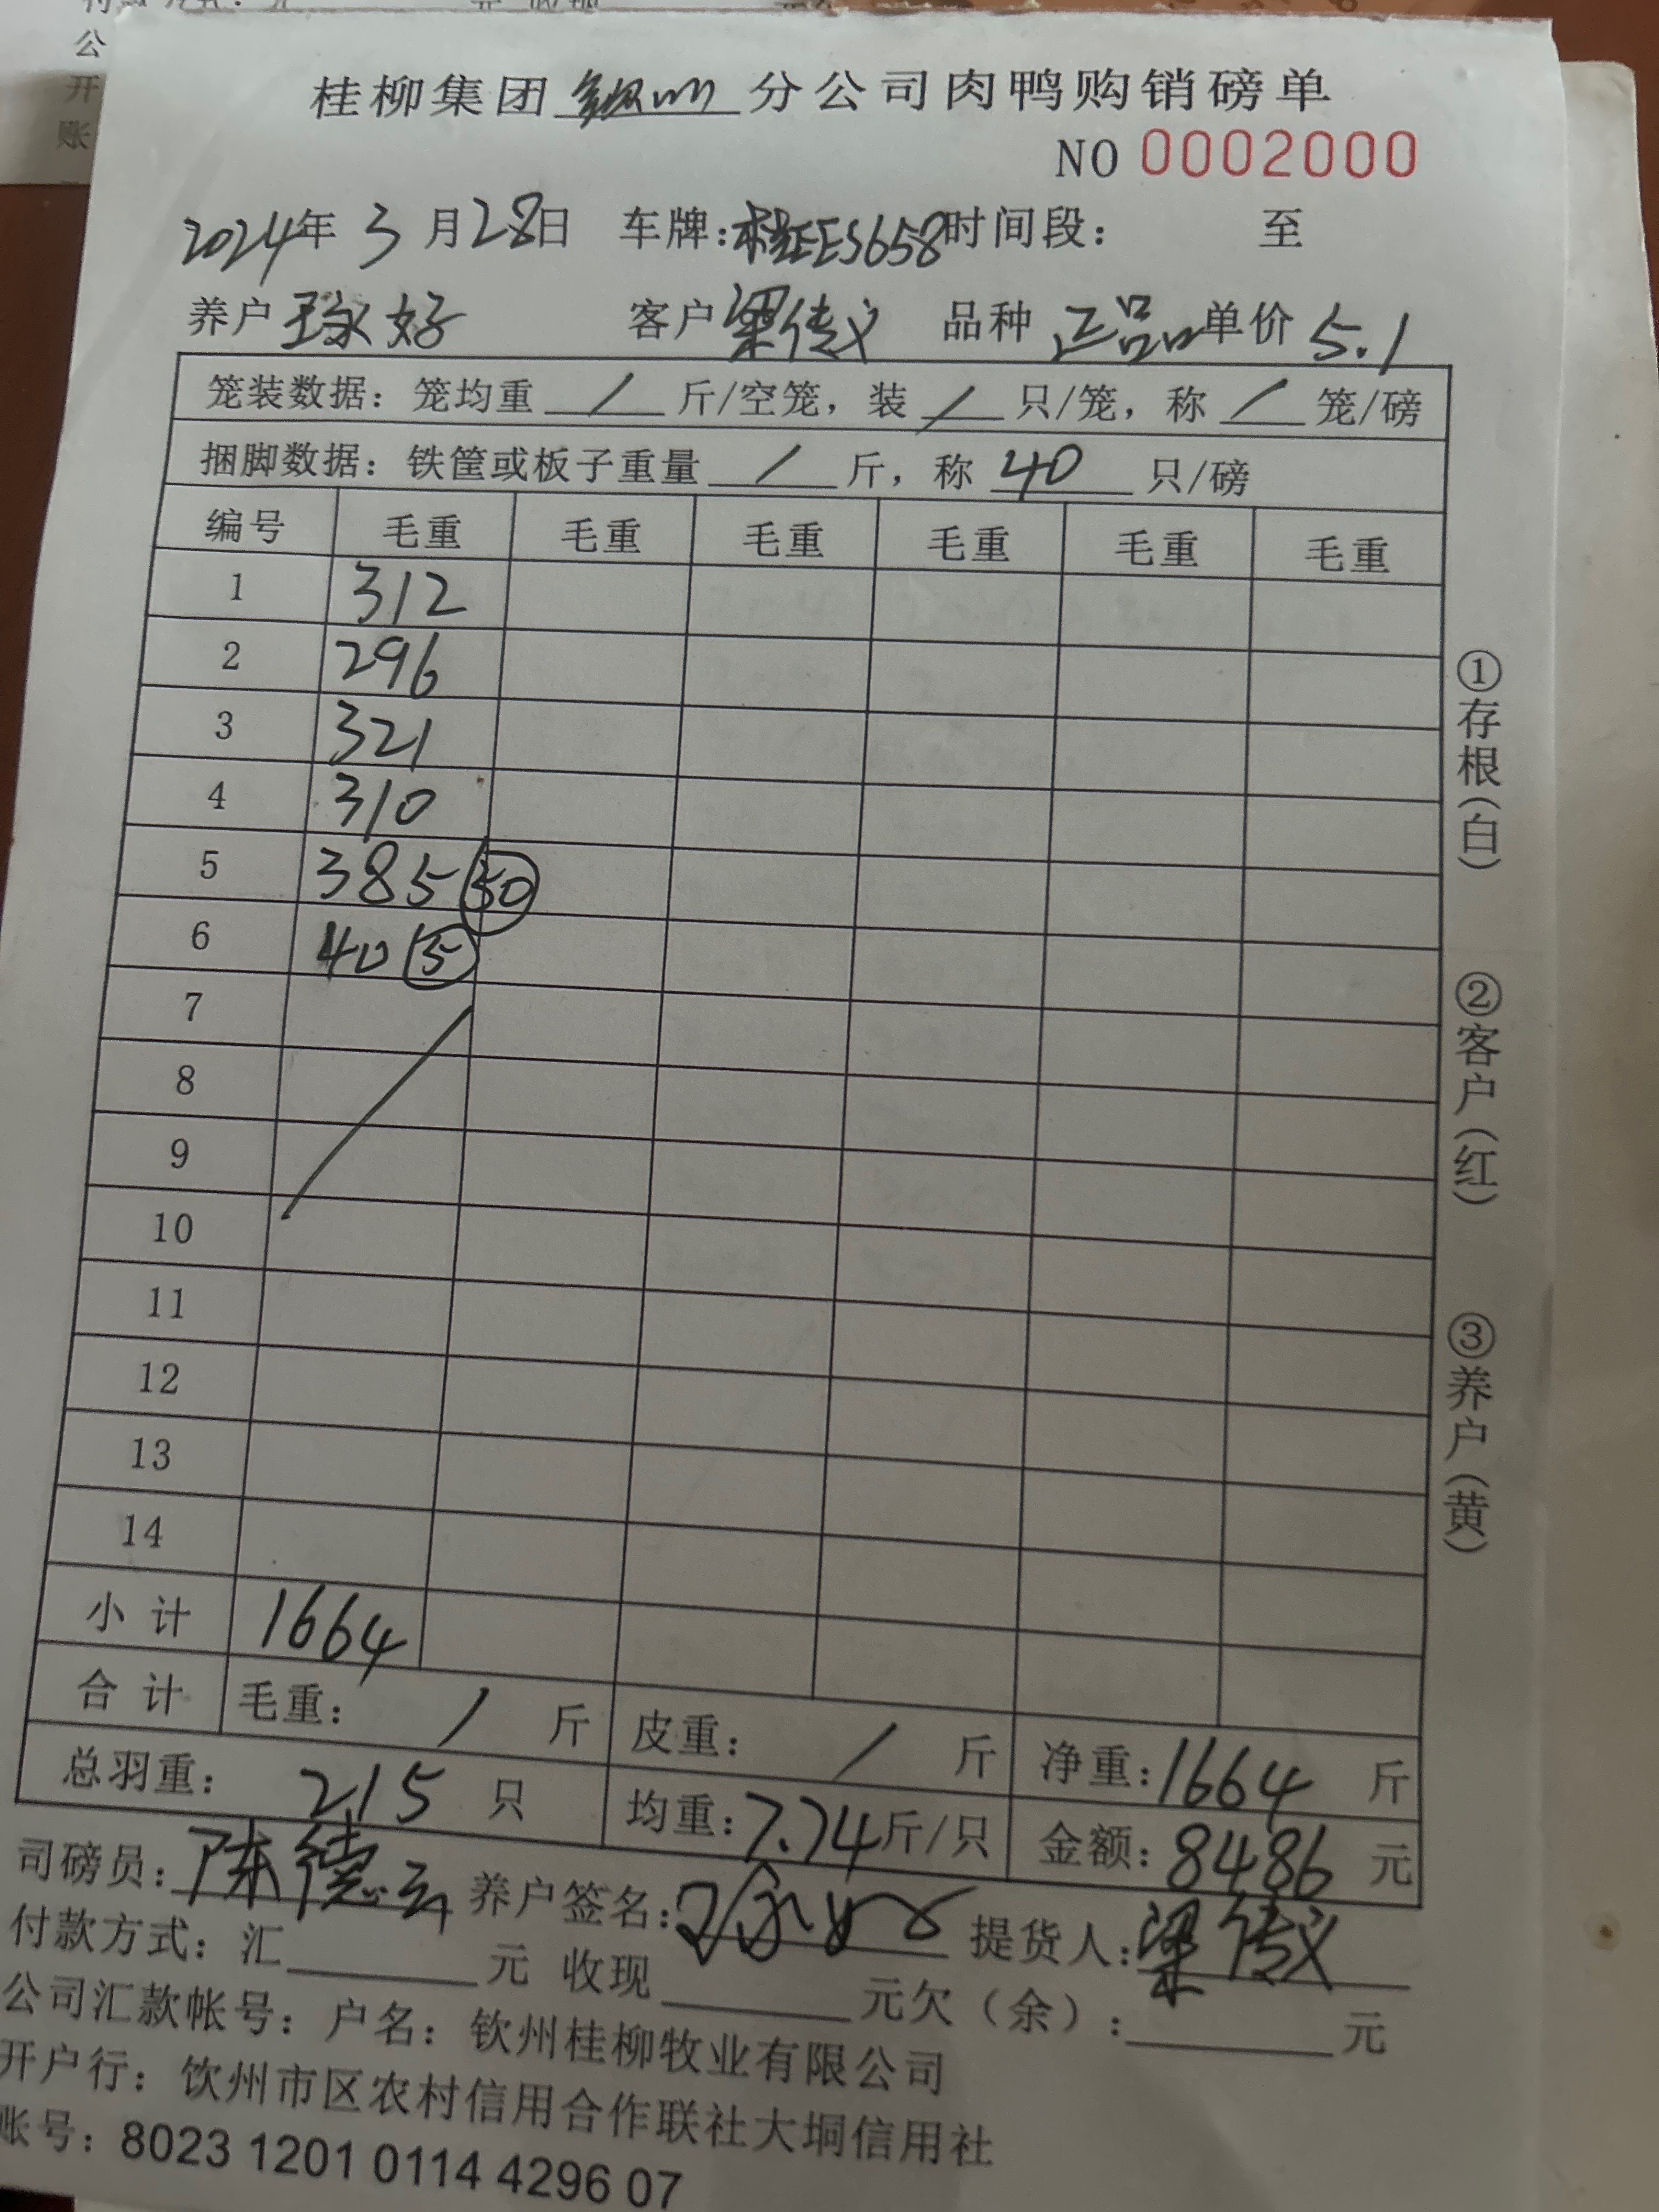 公
开
账
桂柳集团钦州分公司肉鸭购销磅单
NO 0002000
2024年3月28日 车牌:桂EES658时间段: 至
养户 好 客户梁传义 品种 正品 单价 5.1
笼装数据：笼均重 / 斤/空笼，装 / 只/笼，称 / 笼/磅
捆脚数据：铁筐或板子重量 / 斤，称 40 只/磅
编号 毛重 毛重 毛重 毛重 毛重 毛重
1 312
2 296
3 321
4 310
5 385 50
6 40 5
7
8
9
10
11
12
13
14
小计 1664
合计 毛重: / 斤 皮重: / 斤 净重:1664 斤
总羽重: 215 只 均重:7.74斤/只 金额:8486元
司磅员:陈德云 养户签名: 提货人:梁传义
付款方式: 汇 元 收现 元欠（余）: 元
公司汇款帐号: 户名: 钦州桂柳牧业有限公司
开户行: 钦州市区农村信用合作联社大垌信用社
账号: 8023 1201 0114 4296 07
①存根(白)
②客户(红)
③养户(黄)